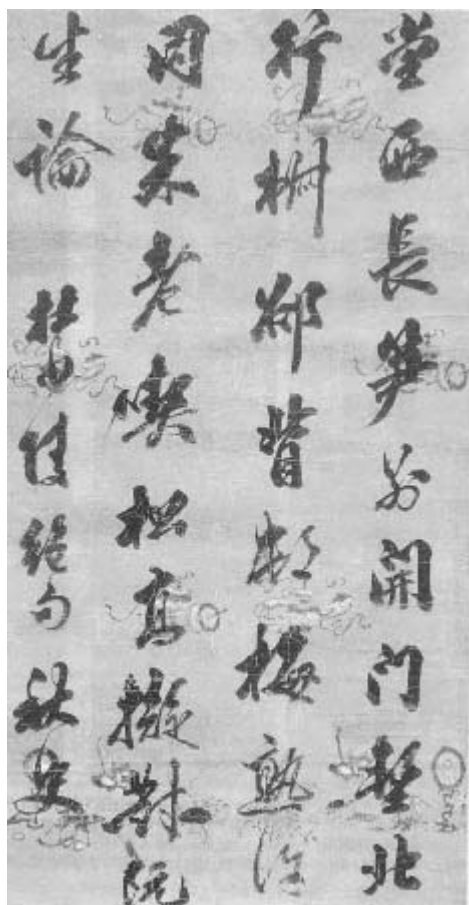 堂西長笋別開門塹北
行椒卻背邨梅熟許
同朱老喫松高擬對阮
生論 杜少陵絕句 秋史